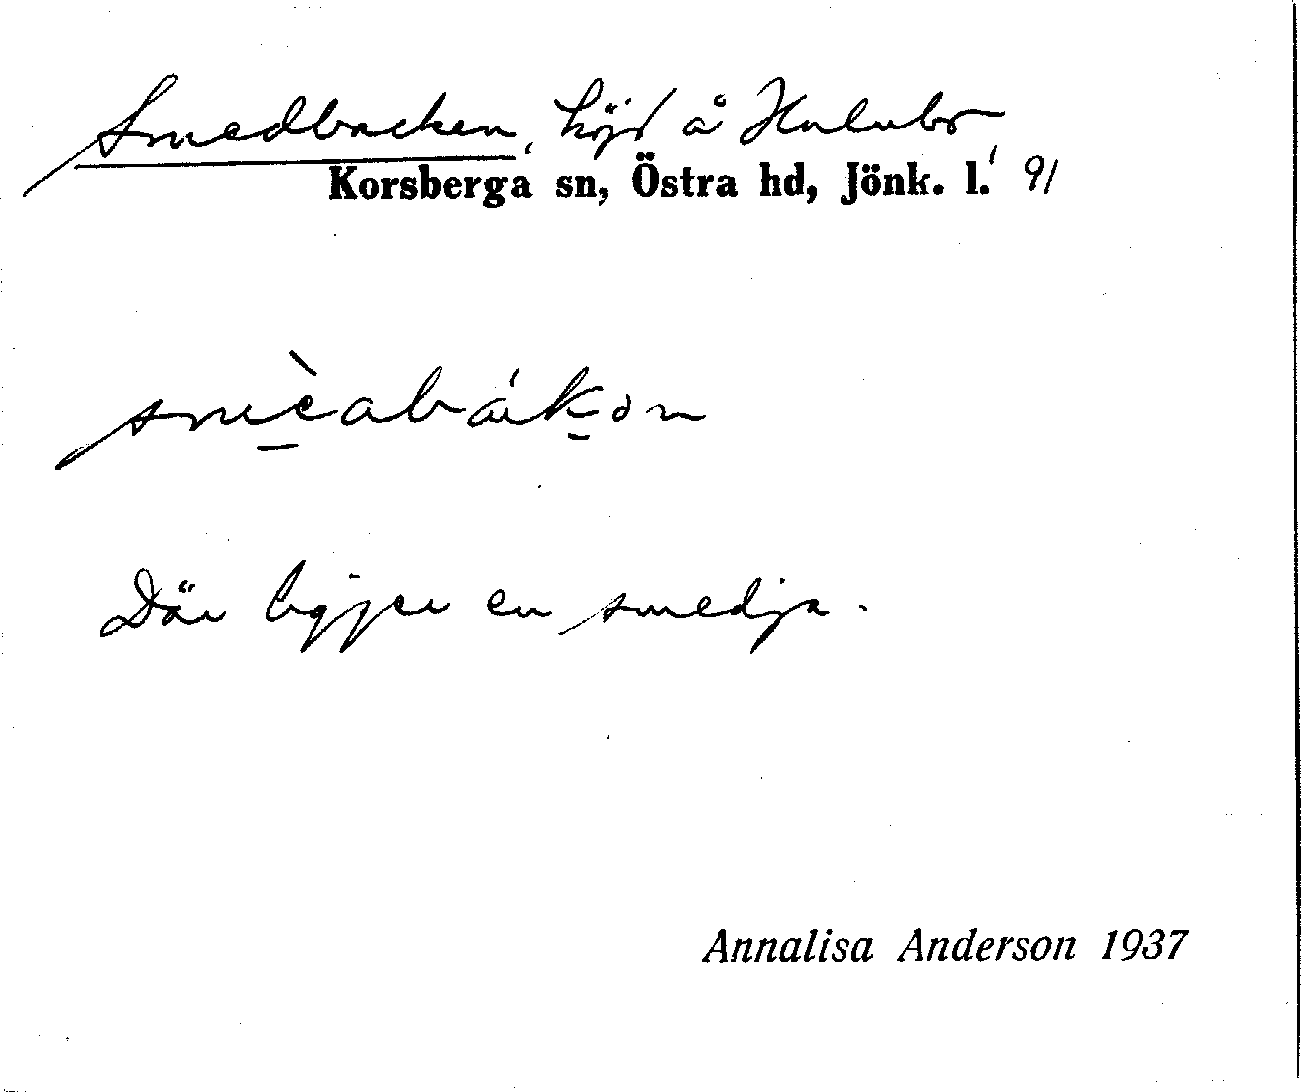 Smedbacken, höjd å Hulubo
Korsberga sn, Östra hd, Jönk. l. 91
Där ligger en smedja.
Annalisa Anderson 1937